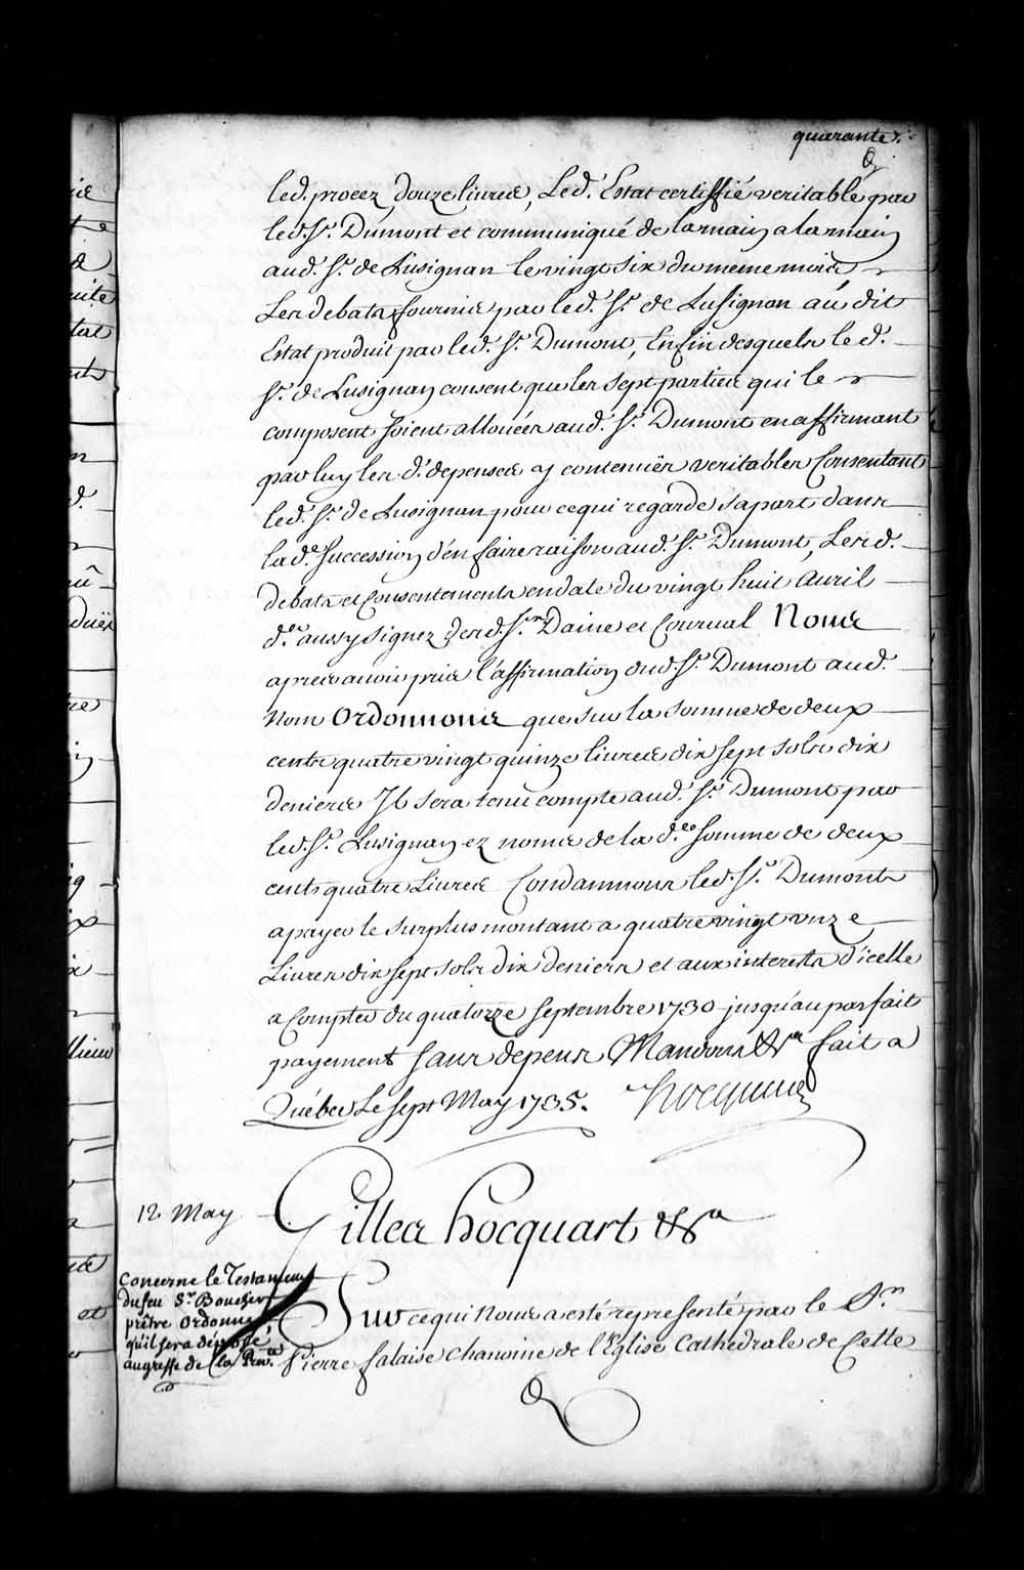 quarante.
led. procez, douze livres, Led. Estat certiffié veritable par
led. Sr. Dumont et communiqué de la main a la main
aud. Sr. de Lusignan le vingt six du meme mois
Les debats fournis par led. Sr. de Lusignan au dit
Estat produit par led. Sr. Dumont, Enfin desquels led.
Sr. de Lusignan consent que les sept parties qui le
composent soient allouées aud. Sr. Dumont en affirmant
par luy les d. depenses y contenües veritables Consentant
led. Sr. de Lusignan pour ce qui regarde sa part dans
la de. Succession d'en faire raison aud. Sr. Dumont, Lesd.
debats et Consentements en date du vingt huit avril
der. aussy signez desd. Srs. Daine et Courval Nous
apres avoir pris l'affirmation dud. Sr. Dumont aud.
nom Ordonnons que sur la somme de deux
cents quatre vingt quinze livres dix sept sols dix
deniers Il sera tenu compte aud. Sr. Dumont par
led. Sr. Lusignan ez noms de la de. somme de deux
cents quatre Livres Condamnons led. Sr. Dumont
a payer le surplus montant a quatre vingt onze
Livres dix sept sols dix deniers et aux interests d'icelle
a Compter du quatorze Septembre 1730 jusqu'au parfait
payement sans depens Mandons &ca fait a
Québec Le sept May 1735. Hocquart
12 May. Gilles hocquart &ca
Concerne le Testament
du feu Sr. Boucher
prêtre ordonne
qu'il sera déposé
au greffe de la Prev.té
Sur ce qui Nous a esté representé par le Sr.
Pierre falaise Chanoine de l'Eglise Cathedrale de Cette